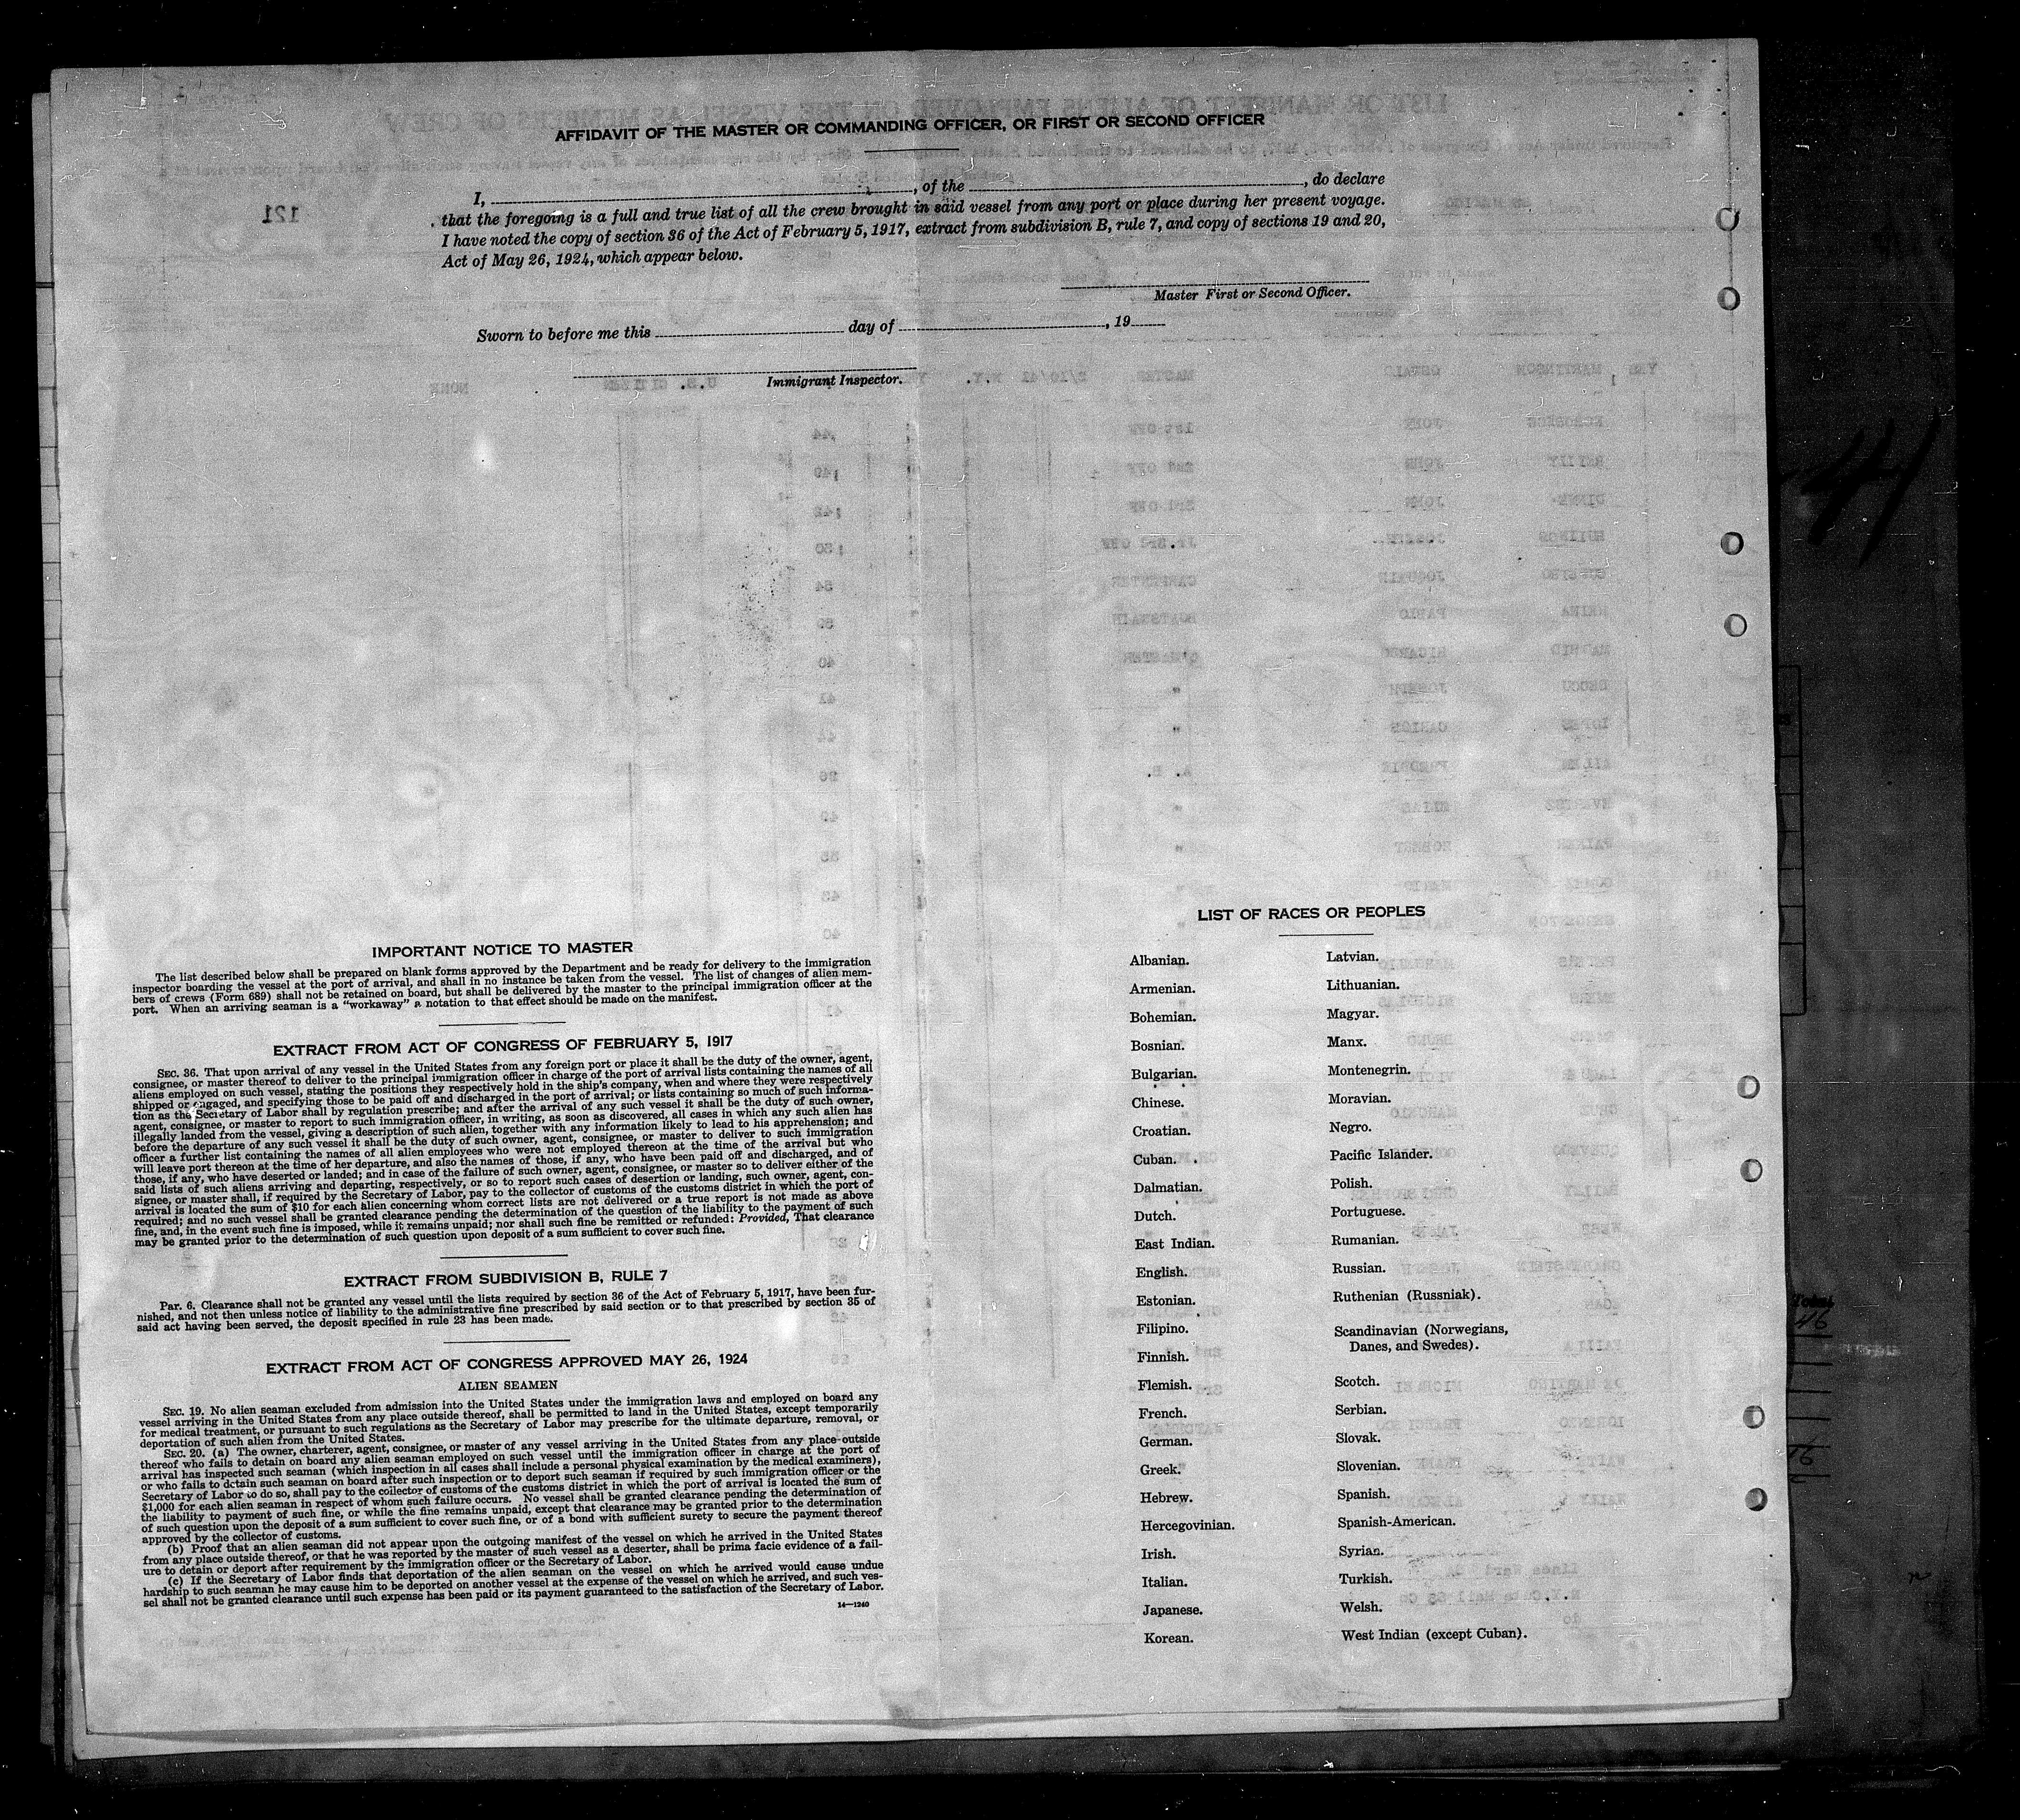 AFFIDAVIT OF THE MASTER OR COMMANDING OFFICER, OR FIRST OR SECOND OFFICER
I, , of the , do declare
that the foregoing is a full and true list of all the crew brought in said vessel from any port or place during her present voyage.
I have noted the copy of section 36 of the Act of February 5, 1917, extract from subdivision B, rule 7, and copy of sections 19 and 20,
Act of May 26, 1924, which appear below.
Master First or Second Officer.
Sworn to before me this day of , 19
Immigrant Inspector.
121
IMPORTANT NOTICE TO MASTER
The list described below shall be prepared on blank forms approved by the Department and be ready for delivery to the immigration
inspector boarding the vessel at the port of arrival, and shall in no instance be taken from the vessel. The list of changes of alien mem-
bers of crews (Form 689) shall not be retained on board, but shall be delivered by the master to the principal immigration officer at the
port. When an arriving seaman is a "workaway" a notation to that effect should be made on the manifest.
EXTRACT FROM ACT OF CONGRESS OF FEBRUARY 5, 1917
SEC. 36. That upon arrival of any vessel in the United States from any foreign port or place it shall be the duty of the owner, agent,
consignee, or master thereof to deliver to the principal immigration officer in charge of the port of arrival lists containing the names of all
aliens employed on such vessel, stating the positions they respectively hold in the ship's company, when and where they were respectively
shipped or engaged, and specifying those to be paid off and discharged in the port of arrival; or lists containing so much of such informa-
tion as the Secretary of Labor shall by regulation prescribe; and after the arrival of any such vessel it shall be the duty of such owner,
agent, consignee, or master to report to such immigration officer, in writing, as soon as discovered, all cases in which any such alien has
illegally landed from the vessel, giving a description of such alien, together with any information likely to lead to his apprehension; and
before the departure of any such vessel it shall be the duty of such owner, agent, consignee, or master to deliver to such immigration
officer a further list containing the names of all alien employees who were not employed thereon at the time of the arrival but who
will leave port thereon at the time of her departure, and also the names of those, if any, who have been paid off and discharged, and of
those, if any, who have deserted or landed; and in case of the failure of such owner, agent, consignee, or master so to deliver either of the
said lists of such aliens arriving and departing, respectively, or so to report such cases of desertion or landing, such owner, agent, con-
signee, or master shall, if required by the Secretary of Labor, pay to the collector of customs of the customs district in which the port of
arrival is located the sum of $10 for each alien concerning whom correct lists are not delivered or a true report is not made as above
required; and no such vessel shall be granted clearance pending the determination of the question of the liability to the payment of such
fine, and, in the event such fine is imposed, while it remains unpaid; nor shall such fine be remitted or refunded: Provided, That clearance
may be granted prior to the determination of such question upon deposit of a sum sufficient to cover such fine.
EXTRACT FROM SUBDIVISION B, RULE 7
Par. 6. Clearance shall not be granted any vessel until the lists required by section 36 of the Act of February 5, 1917, have been fur-
nished, and not then unless notice of liability to the administrative fine prescribed by said section or to that prescribed by section 35 of
said act having been served, the deposit specified in rule 23 has been made.
EXTRACT FROM ACT OF CONGRESS APPROVED MAY 26, 1924
ALIEN SEAMEN
SEC. 19. No alien seaman excluded from admission into the United States under the immigration laws and employed on board any
vessel arriving in the United States from any place outside thereof, shall be permitted to land in the United States, except temporarily
for medical treatment, or pursuant to such regulations as the Secretary of Labor may prescribe for the ultimate departure, removal, or
deportation of such alien from the United States.
SEC. 20. (a) The owner, charterer, agent, consignee, or master of any vessel arriving in the United States from any place outside
thereof who fails to detain on board any alien seaman employed on such vessel until the immigration officer in charge at the port of
arrival has inspected such seaman (which inspection in all cases shall include a personal physical examination by the medical examiners),
or who fails to detain such seaman on board after such inspection or to deport such seaman if required by such immigration officer or the
Secretary of Labor to do so, shall pay to the collector of customs of the customs district in which the port of arrival is located the sum of
$1,000 for each alien seaman in respect of whom such failure occurs. No vessel shall be granted clearance pending the determination of
the liability to payment of such fine, or while the fine remains unpaid, except that clearance may be granted prior to the determination
of such question upon the deposit of a sum sufficient to cover such fine, or of a bond with sufficient surety to secure the payment thereof
approved by the collector of customs.
(b) Proof that an alien seaman did not appear upon the outgoing manifest of the vessel on which he arrived in the United States
from any place outside thereof, or that he was reported by the master of such vessel as a deserter, shall be prima facie evidence of a fail-
ure to detain or deport after requirement by the immigration officer or the Secretary of Labor.
(c) If the Secretary of Labor finds that deportation of the alien seaman on the vessel on which he arrived would cause undue
hardship to such seaman he may cause him to be deported on another vessel at the expense of the vessel on which he arrived, and such ves-
sel shall not be granted clearance until such expense has been paid or its payment guaranteed to the satisfaction of the Secretary of Labor.
14—1240
LIST OF RACES OR PEOPLES
Albanian.
Armenian.
Bohemian.
Bosnian.
Bulgarian.
Chinese.
Croatian.
Cuban.
Dalmatian.
Dutch.
East Indian.
English.
Estonian.
Filipino.
Finnish.
Flemish.
French.
German.
Greek.
Hebrew.
Hercegovinian.
Irish.
Italian.
Japanese.
Korean.
Latvian.
Lithuanian.
Magyar.
Manx.
Montenegrin.
Moravian.
Negro.
Pacific Islander.
Polish.
Portuguese.
Rumanian.
Russian.
Ruthenian (Russniak).
Scandinavian (Norwegians,
Danes, and Swedes).
Scotch.
Serbian.
Slovak.
Slovenian.
Spanish.
Spanish-American.
Syrian.
Turkish.
Welsh.
West Indian (except Cuban).
41
Total
46